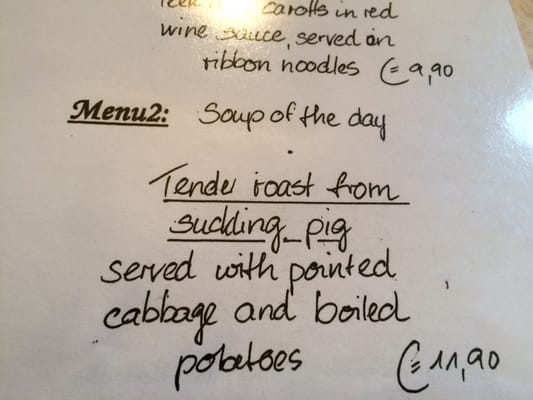 carotts in red
wine sauce, served on
ribbon noodles € 9,90
Menu2: Soup of the day
Tender roast from
suckling pig
served with pointed
cabbage and boiled
potatoes € 11,90